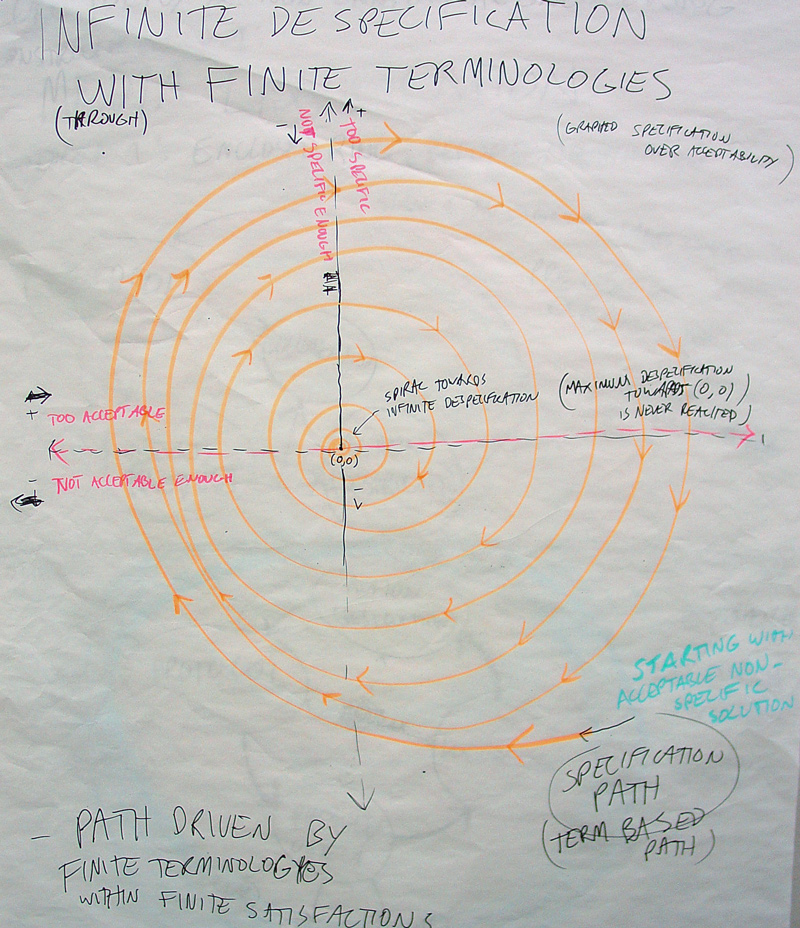 INFINITE DESPECIFICATION
WITH FINITE TERMINOLOGIES
(THROUGH)
(GRAPHED SPECIFICATION
OVER ACCEPTABILITY)
+
-
NOT SPECIFIC ENOUGH
TOO SPECIFIC
SPIRAL TOWARDS
INFINITE DESPECIFICATION
(MAXIMUM DESPECIFICATION
TOWARDS (0,0)
IS NEVER REACHED)
+ TOO ACCEPTABLE
(0,0)
- NOT ACCEPTABLE ENOUGH
-
STARTING WITH
ACCEPTABLE NON-
SPECIFIC
SOLUTION
SPECIFICATION
PATH
(TERM BASED
PATH)
- PATH DRIVEN BY
FINITE TERMINOLOGYES
WITHIN FINITE SATISFACTIONS